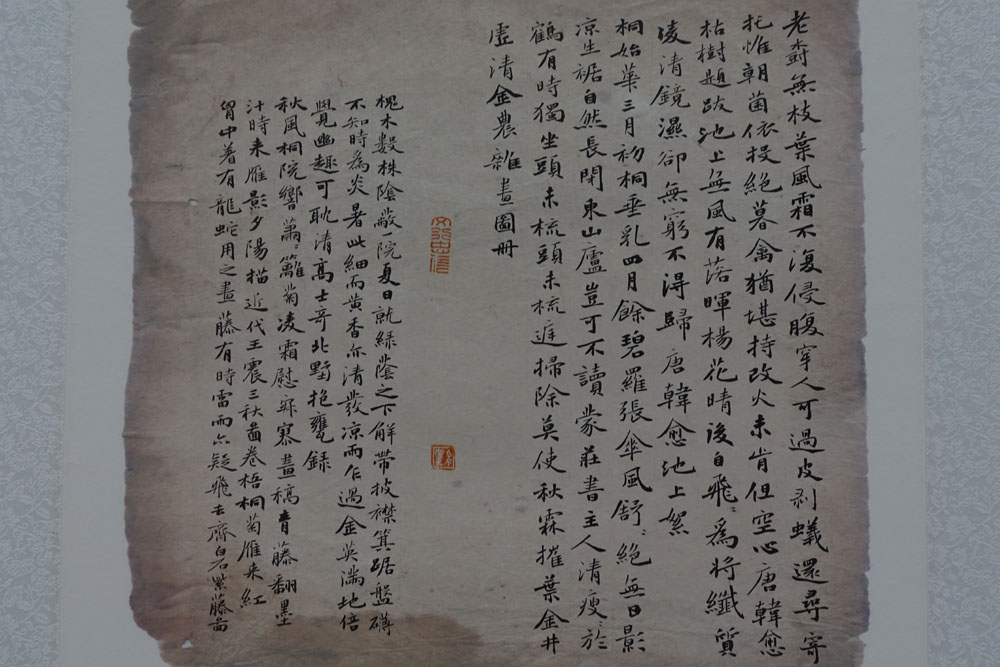 老樹無枝葉風霜不復侵腹穿人可過皮剥蟻還尋寄
托惟朝菌依投絕暮禽猶堪持改火未肯但空心唐韓愈
枯樹題跋池上無風有落暉楊花晴後自飛〻為將纖質
凌清鏡濕卻無窮不得歸唐韓愈池上絮
桐始華三月初桐垂乳四月餘碧羅張傘風舒〻絕無日影
凉生裾自然長閑東山廬豈可不讀蒙莊書主人清瘦〻於
鶴有時獨坐頭未梳頭未梳遲掃除莫使秋霖摧葉金井
虛清金農雜畫圖册
文行忠信
槐木數株陰蔽一院夏日就綠蔭之下解帶披襟箕踞盤礴
不知時為炎暑此細而黄香亦清發凉雨乍過金英滿地倍
覺幽趣可耽清高士奇北墅抱甕錄
秋風桐院響蕭〻籬菊凌霜慰寂寥畫稿青藤翻墨
汁時来雁影夕陽描近代王震三秋啚卷梧桐菊雁来紅
胷中著有龍蛇用之畫藤有時雷雨亦疑飛去齊白石紫藤啚